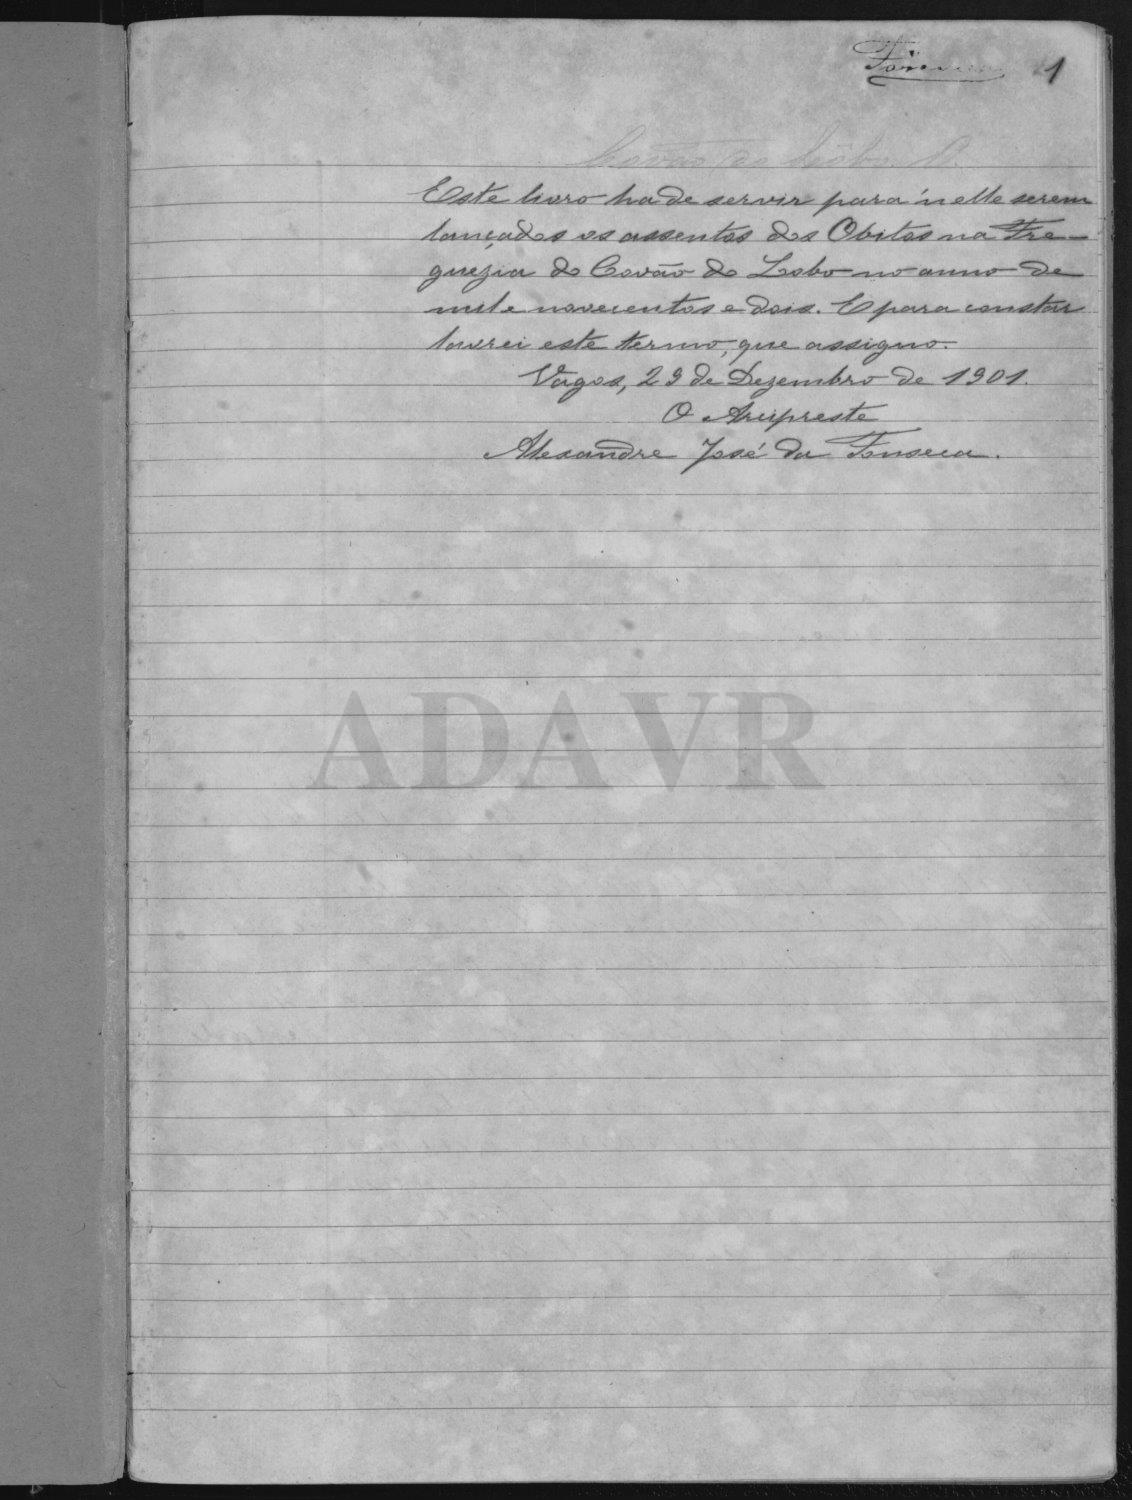 Fonseca 1
Covão do Lobo. O.
Este livro ha de servir para n'elle serem
lançados os assentos dos Obitos na Fre-
guezia do Covão do Lobo no anno de
mil e novecentos e dois. E para constar
lavrei este termo, que assigno.
Vagos, 29 de Dezembro de 1901.
O Arcipreste
Alexandre José da Fonseca.
ADAVR